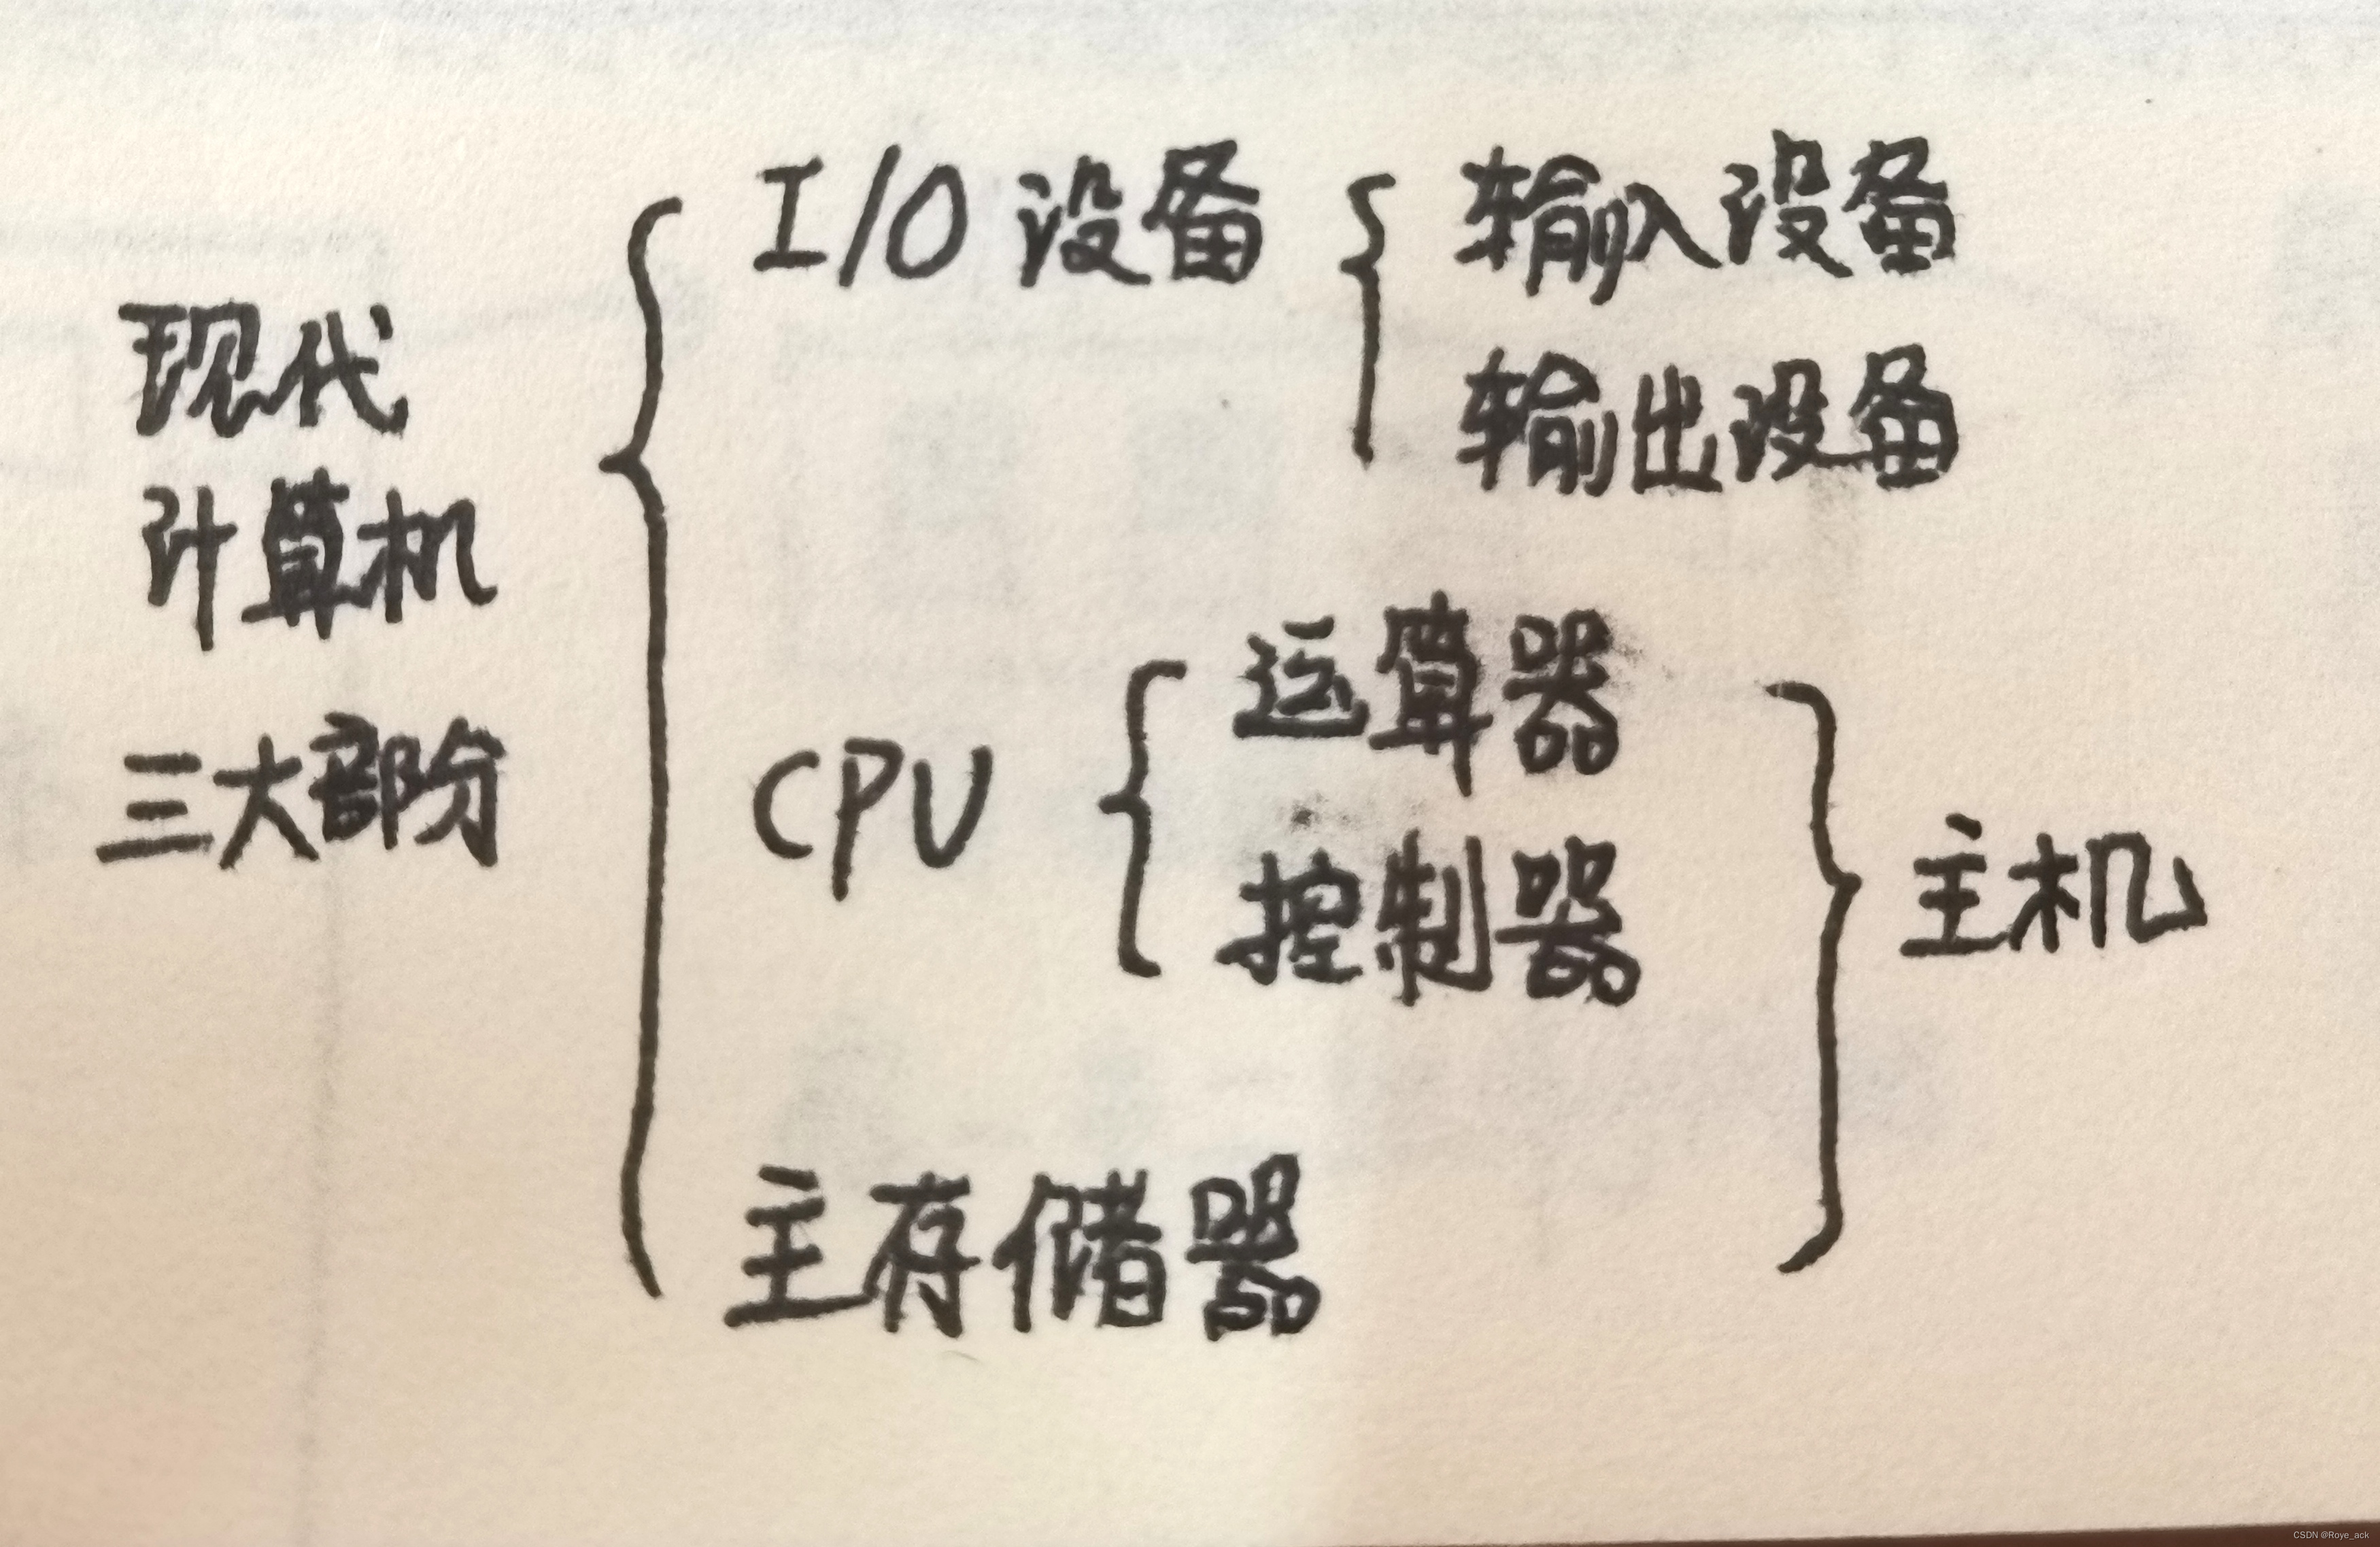 现代
计算机
三大部分
I/O 设备
输入设备
输出设备
CPU
运算器
控制器
主存储器
主机
CSDN @Roye_ack